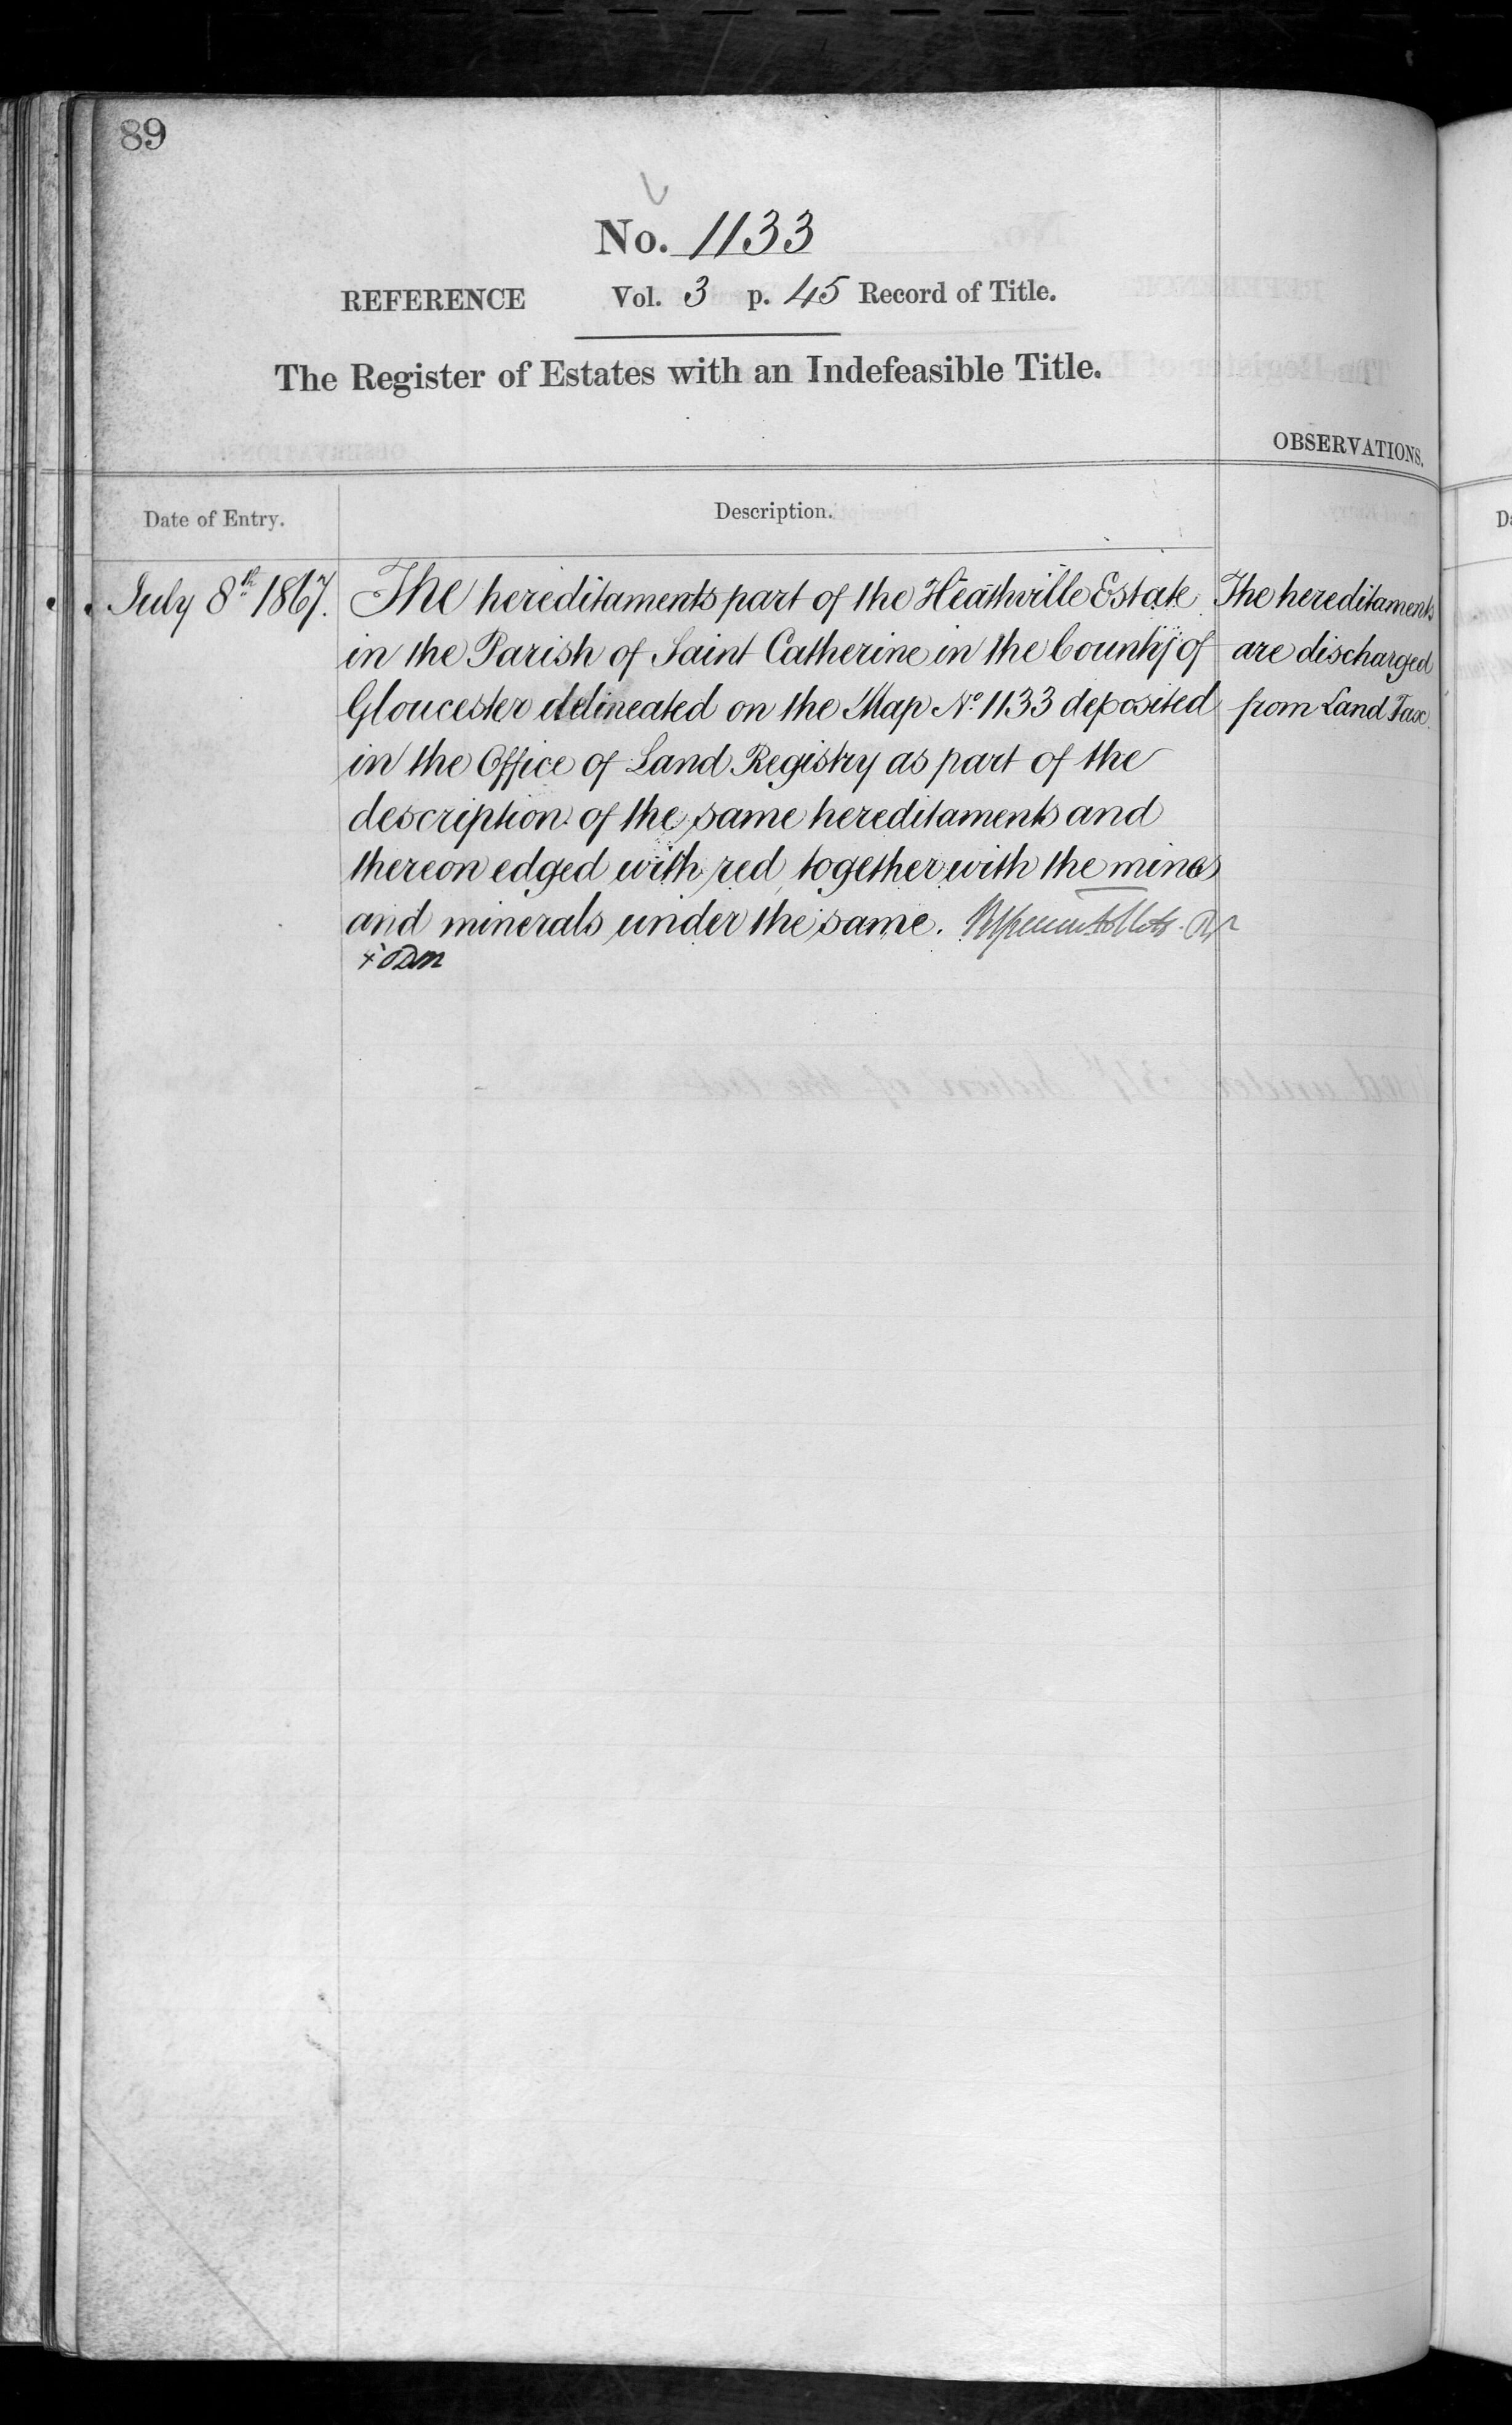 89
No. 1133
REFERENCE Vol. 3 p. 45 Record of Title.
The Register of Estates with an Indefeasible Title.
OBSERVATIONS.
Date of Entry. Description.
July 8th 1867. The hereditaments part of the Heathville Estate
in the Parish of Saint Catherine in the County of
Gloucester delineated on the Map No. 1133 deposited
in the Office of Land Registry as part of the
description of the same hereditaments and
thereon edged with red together with the mines
and minerals under the same.
The hereditaments
are discharged
from Land Tax.